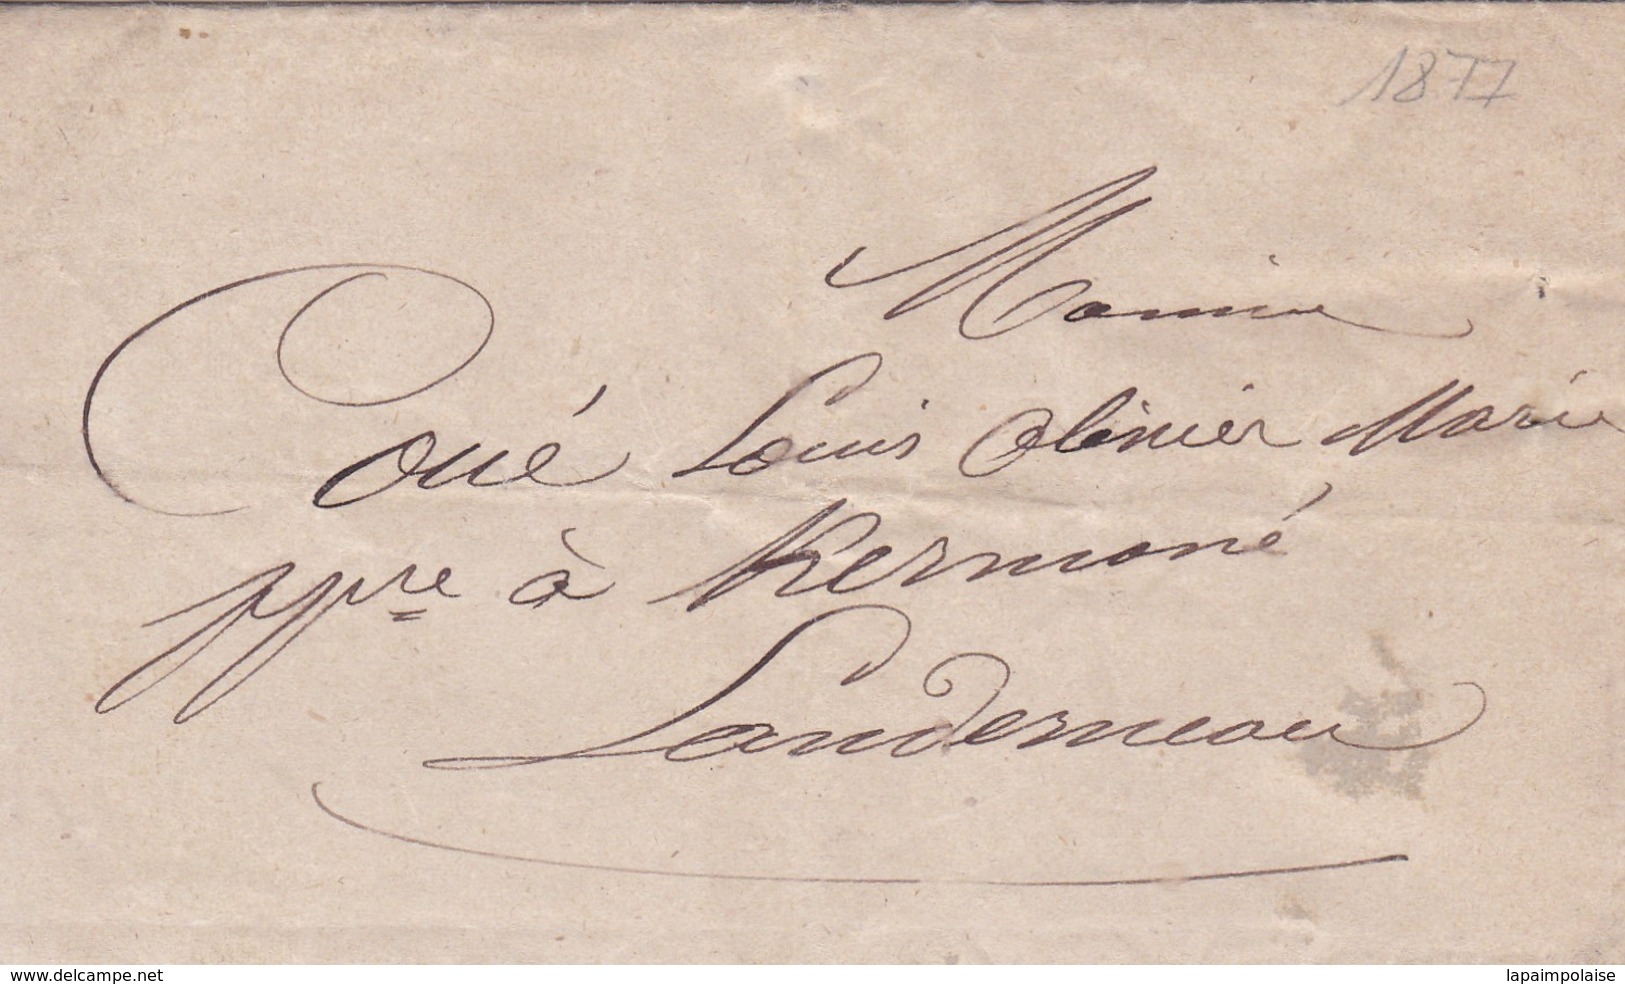 1877
Coué Louis Olivier Marie
pp^re à Kermoné
Landerneau
www.delcampe.net
lapaimpolaise